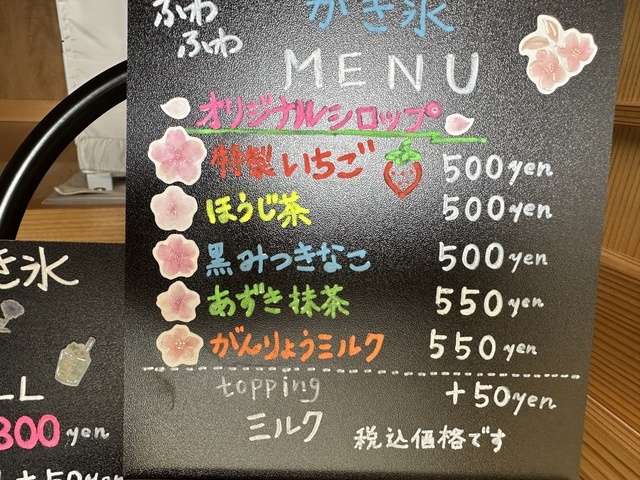 ふわ
ふわ
かき氷
MENU
オリジナルシロップ
特製いちご 500yen
ほうじ茶 500yen
黒みつきなこ 500yen
あずき抹茶 550yen
がんりょうミルク 550yen
topping +50yen
ミルク
税込価格です
き氷
LL
300yen
+50yen